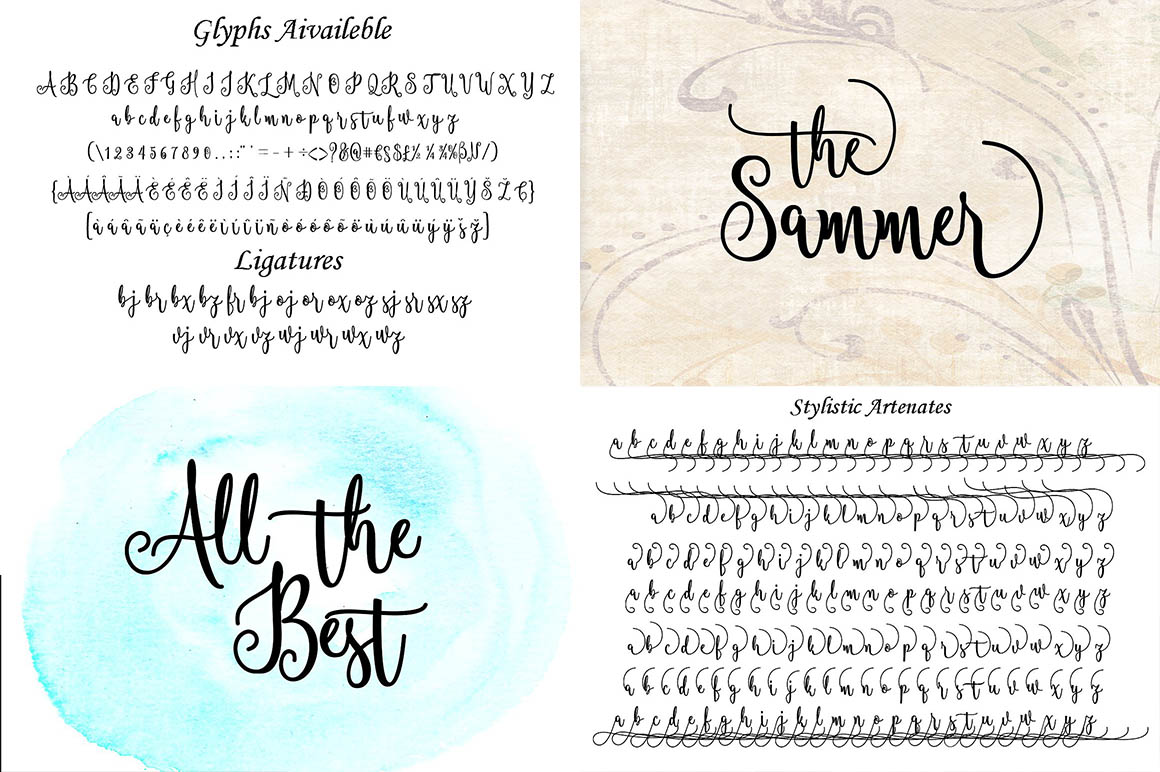 Glyphs Aivaileble
A B C D E F G H I J K L M N O P Q R S T U V W X Y Z
a b c d e f g h i j k l m n o p q r s t u f w x y z
(\1234567890..:;"'=-+÷<>?&@#€$£½¼¾%/)
{ÀÁÂÃÄÈÉÊËÌÍÎÏÑÐÒÓÔÕÖÙÚÛÜŸŠŽÇ}
[àáâãäçèéêëìíîïñòóôõöùúûüýÿšž]
Ligatures
bj br bx bz fr bj oj or ox oz sj sr sx sz
vj vr vx vz wj wr wx wz
the
Sammer
All the
Best
Stylistic Artenates
a b c d e f g h i j k l m n o p q r s t u v w x y z
a b c d e f g h i j k l m n o p q r s t u v w x y z
a b c d e f g h i j k l m n o p q r s t u v w x y z
a b c d e f g h i j k l m n o p q r s t u v w x y z
a b c d e f g h i j k l m n o p q r s t u v w x y z
a b c d e f g h i j k l m n o p q r s t u v w x y z
a b c d e f g h i j k l m n o p q r s t u v w x y z